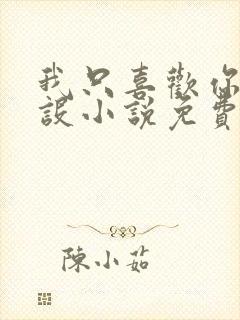 我只喜歡你
設小說免費
陳小茹